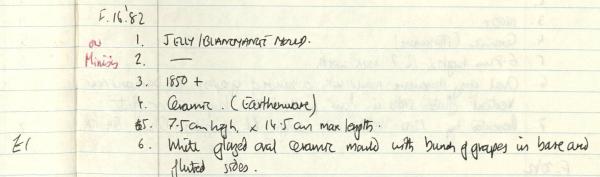 F.16.'82
on Minisis
1. JELLY/BLANCMANGE MOULD.
2. —
3. 1850 +
4. Ceramic. (Earthenware)
5. 7.5cm high, x 14.5cm max length.
E1 6. White glazed oval ceramic mould with bunch of grapes in base and
fluted sides.